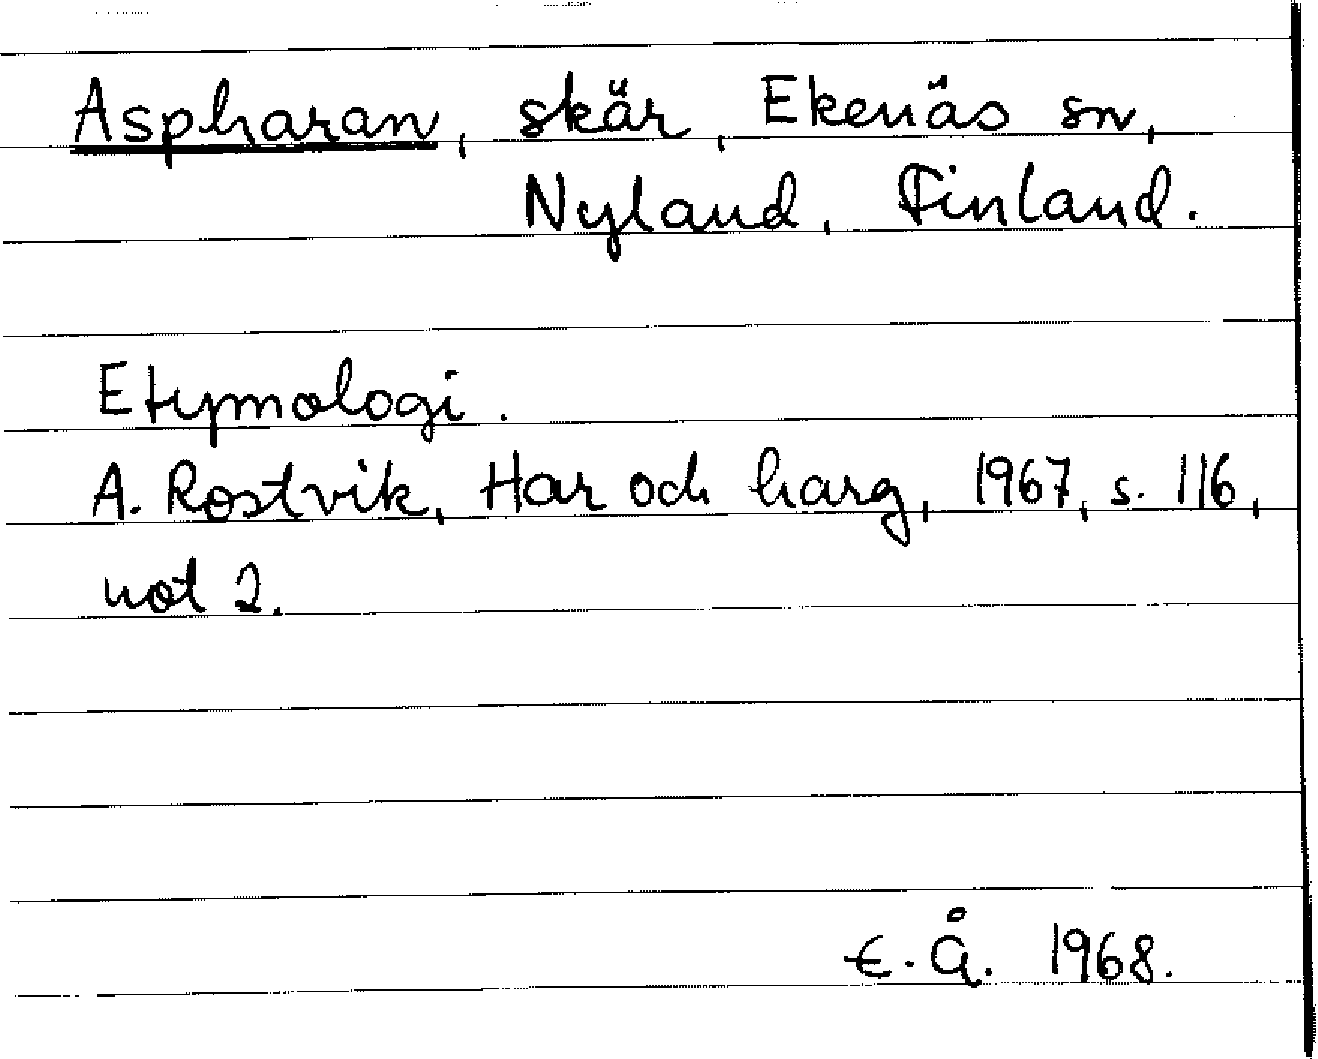 Aspharan, skär, Ekenäs sn,
Nyland, Finland.
Etymologi.
A. Rostvik, Har och harg, 1967, s. 116,
not 2.
E. Å. 1968.